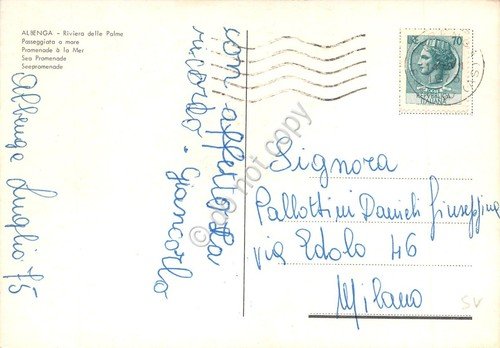 ALBENGA - Riviera delle Palme
Passeggiata a mare
Promenade à la Mer
Sea Promenade
Seepromenade
Albenga Luglio 75
con affettuoso
ricordo - Giancarlo
LIRE 70
REPUBBLICA
ITALIANA
Signora
Pallottini Danieli Giuseppina
via Edolo 46
Milano
do not copy
SV